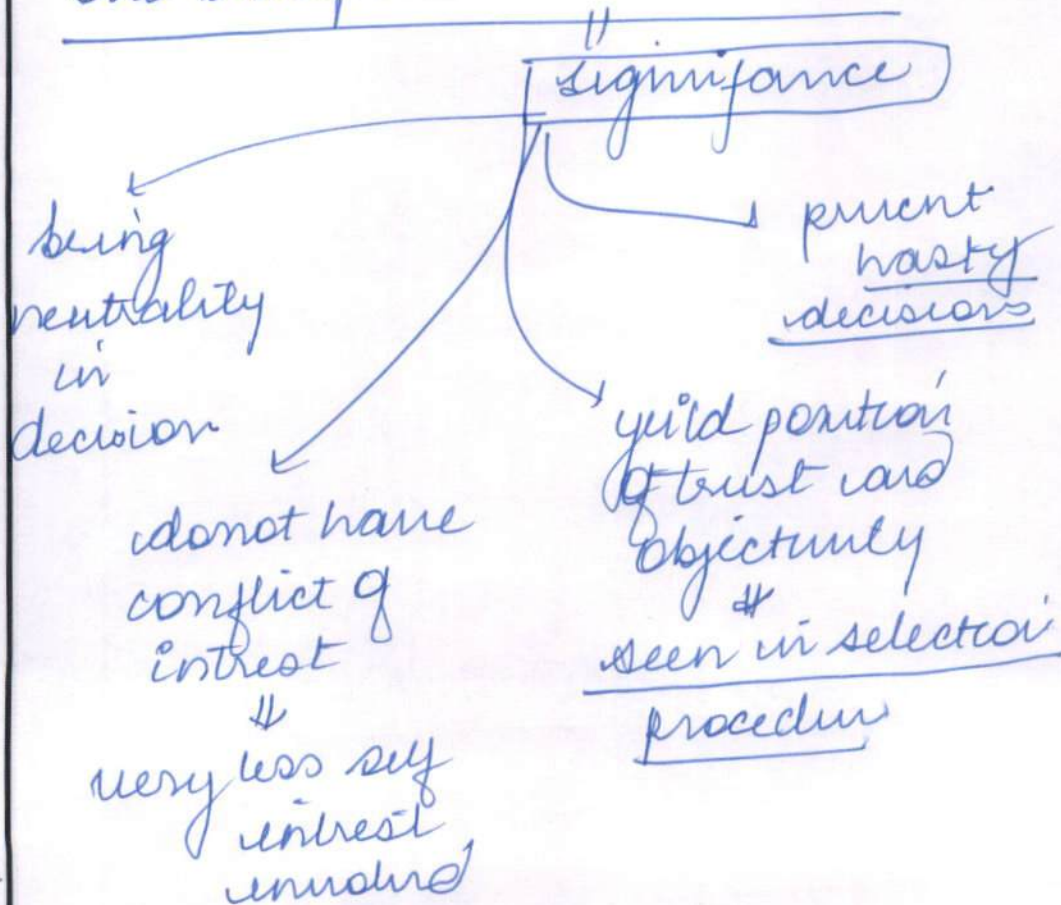 signifance
being
neutrality
in
decision
prevent
hasty
decisions
donot have
conflict of
intrest
very less self
intrest
involved
yeild position
of trust and
objectivity
seen in selection
procedure